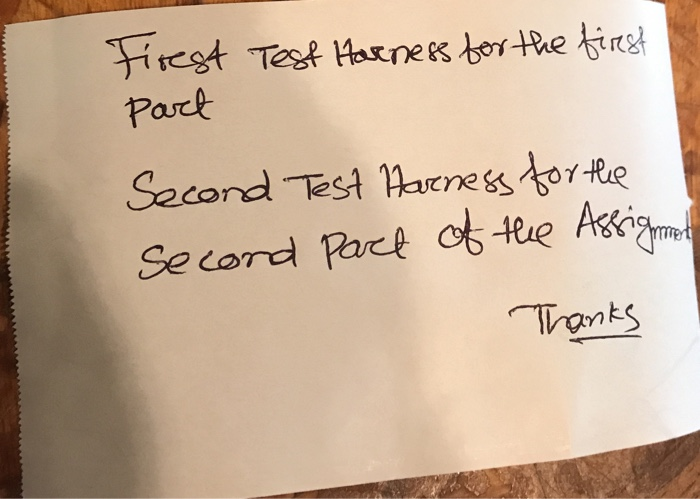 First Test Harness for the first
Part
Second Test Harness for the
Second Part of the Assignment
Thanks